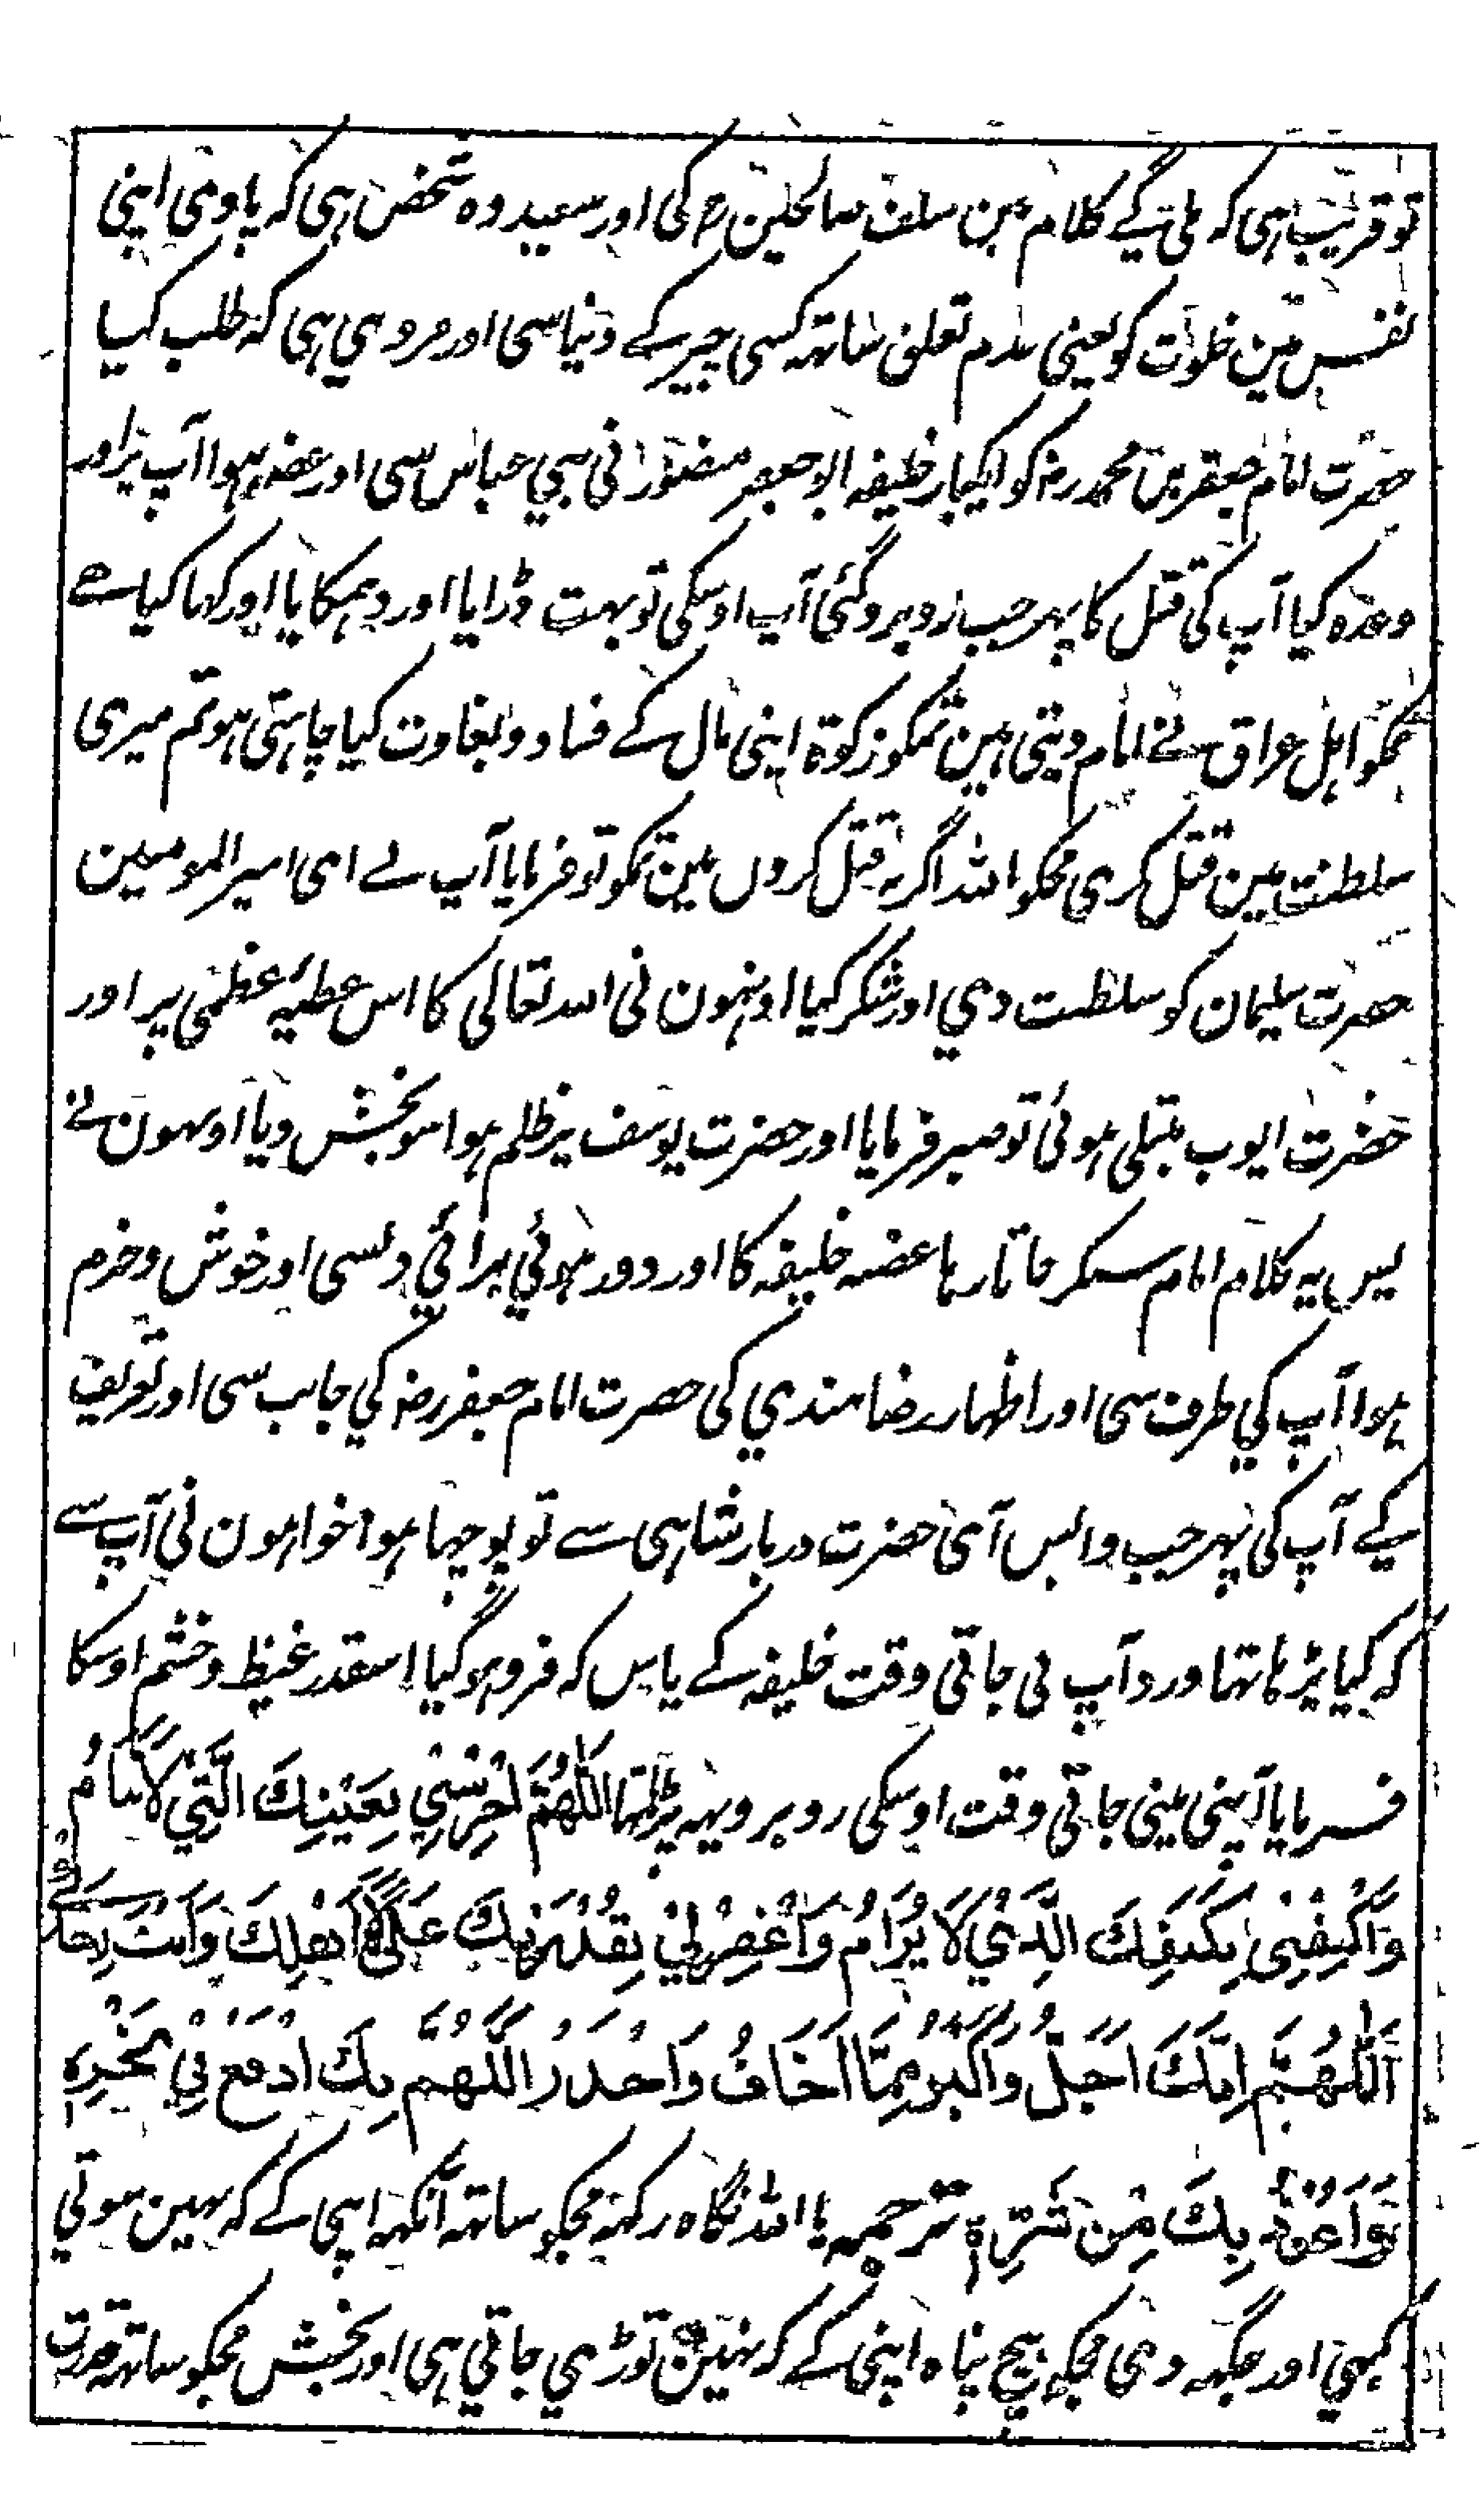 تو قریب ہی کہ ملی گے کلام مین سلف صالحین رح کی اور سعید وہ شخص ہی کہ پاوی اپنی
نفس مین خلوت کو یعنی عدم تعلق ساتہہ کسی چیز کے دنیا سی اور مروی ہی کہ طلب کیا
حضرت امام جعفر بن محمد رض کو ایکبار خلیفہ ابو جعفر منصور نی بنی عباس سی اور غصہ ہوا آپ پر اور
وعدہ کیا آپ کی قتل کا پہر جب روبرو گئی آپ اوسکی تو بہت ڈرایا اور دہمکایا اور کہا کیا ہے
تمکو اہل عراق نے امام دیتی ہین تمکو زکوة اپنی مال کے فساد و بغاوت کیا چاہتی ہو تم میری
سلطنت مین قتل کری مجکو اللہ اگر نہ قتل کروں مین تمکو تو فرمایا آپ نے ای امیر المومنین
حضرت سلیمان کو سلطنت دی اور شکر کیا اونہون نی اللہ تعالی کا اس عطیہ عظمی پر اور
حضرت ایوب مبتلی ہوئی تو صبر فرمایا اور حضرت یوسف پر ظلم ہوا سو بخش دیا اونہون نے
پس یہ کلام امام سنکر جاتا رہا غصہ خلیفہ کا اور دور ہوئی برائی دلسی اور خوش و خرم
ہوا آپ کی طرف سی اور اظہار رضامندی کی حضرت امام جعفر رض کی جانب سی اور تعریف
کیے آپ کی پہر جب واپس آئی حضرت دربار شاہی سے تو پوچہا ہوا خواہون نی آپ سے
کہ کیا پڑہا تہا ورد آپ نی جاتی وقت خلیفہ کے پاس کہ فرو ہو گیا اسقدر غیظ و خشم اوسکا
فرمایا آپنی مینی جاتی وقت اوسکی روبرو یہہ پڑہا تہا اَللّٰهُمَّ احْرُسْنِي بِعَيْنِكَ الَّتِيْ لَاتَنَامُ
وَاكْنِفْنِي بِكَنَفِكَ الَّذِيْ لَا يُرَامُ وَاغْفِرْلِيْ بِقُدْرَتِكَ عَلَيَّ لَا اَهْلِكُ وَاَنْتَ رَجَائِيْ
اَللّٰهُمَّ اِنَّكَ اَجَلُّ وَاَكْبَرُ مِمَّا اَخَافُ وَاَحْذَرُ اَللّٰهُمَّ بِكَ اَدْفَعُ فِيْ نَحْرِهِ
وَاَعُوْذُ بِكَ مِنْ شَرِّهِ ترجمہ یا اللہ نگاہ رکہنہ مجکو ساتہہ آنکہہ اپنی کے کہ نہین سوتی
کبہی اور جگہہ دی مجکو بیچ پناہ اپنی کے کہ نہین توڑی جاتی ہی اور بخش مجکو ساتہہ قدرت